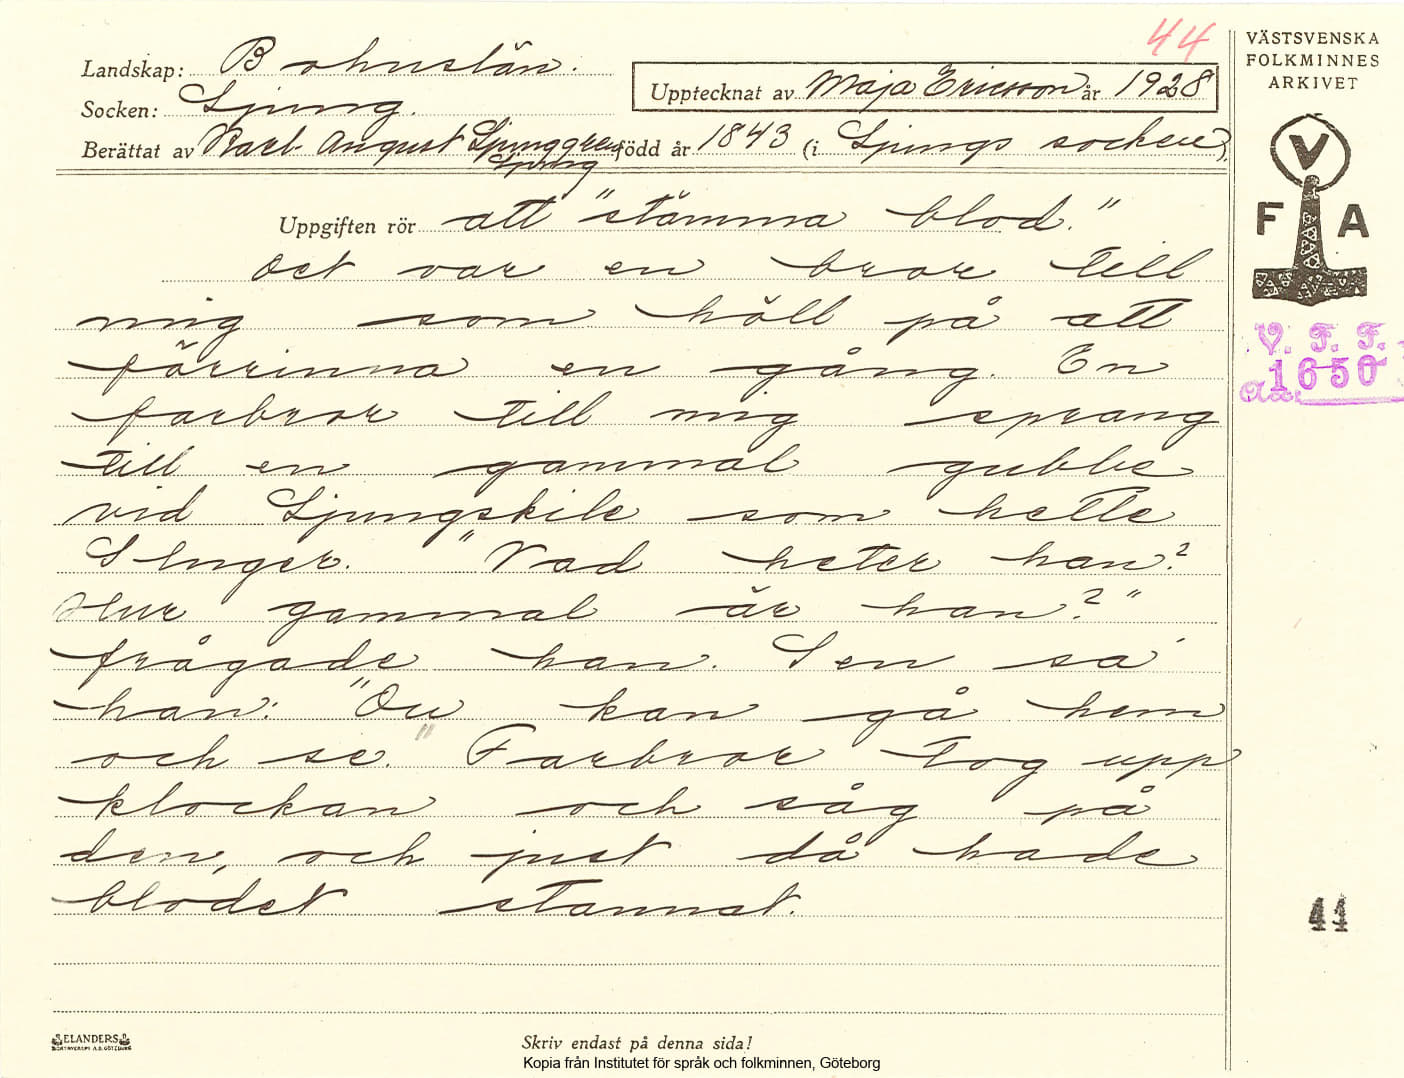 44
VÄSTSVENSKA
FOLKMINNES
ARKIVET
Landskap: Bohuslän.
Upptecknat av Maja Ericsson år 1928
Socken: Ljung.
Berättat av Karl August Ljunggren, Ljung född år 1843 (i Ljungs socken).
V
F A
Uppgiften rör att "stämma blod."
Det var en bror till
mig som höll på att
förrinna en gång. En
farbror till mig sprang
till en gammal gubbe
vid Ljungskile som hette
Slnger. "Vad heter han?
Hur gammal är han?"
frågade han. Sen sa
han: "Du kan gå hem
och se." Farbror tog upp
klockan och såg på
den, och just då hade
blodet stannat.
V. F. F.
1650
44
ELANDERS
Skriv endast på denna sida!
Kopia från Institutet för språk och folkminnen, Göteborg